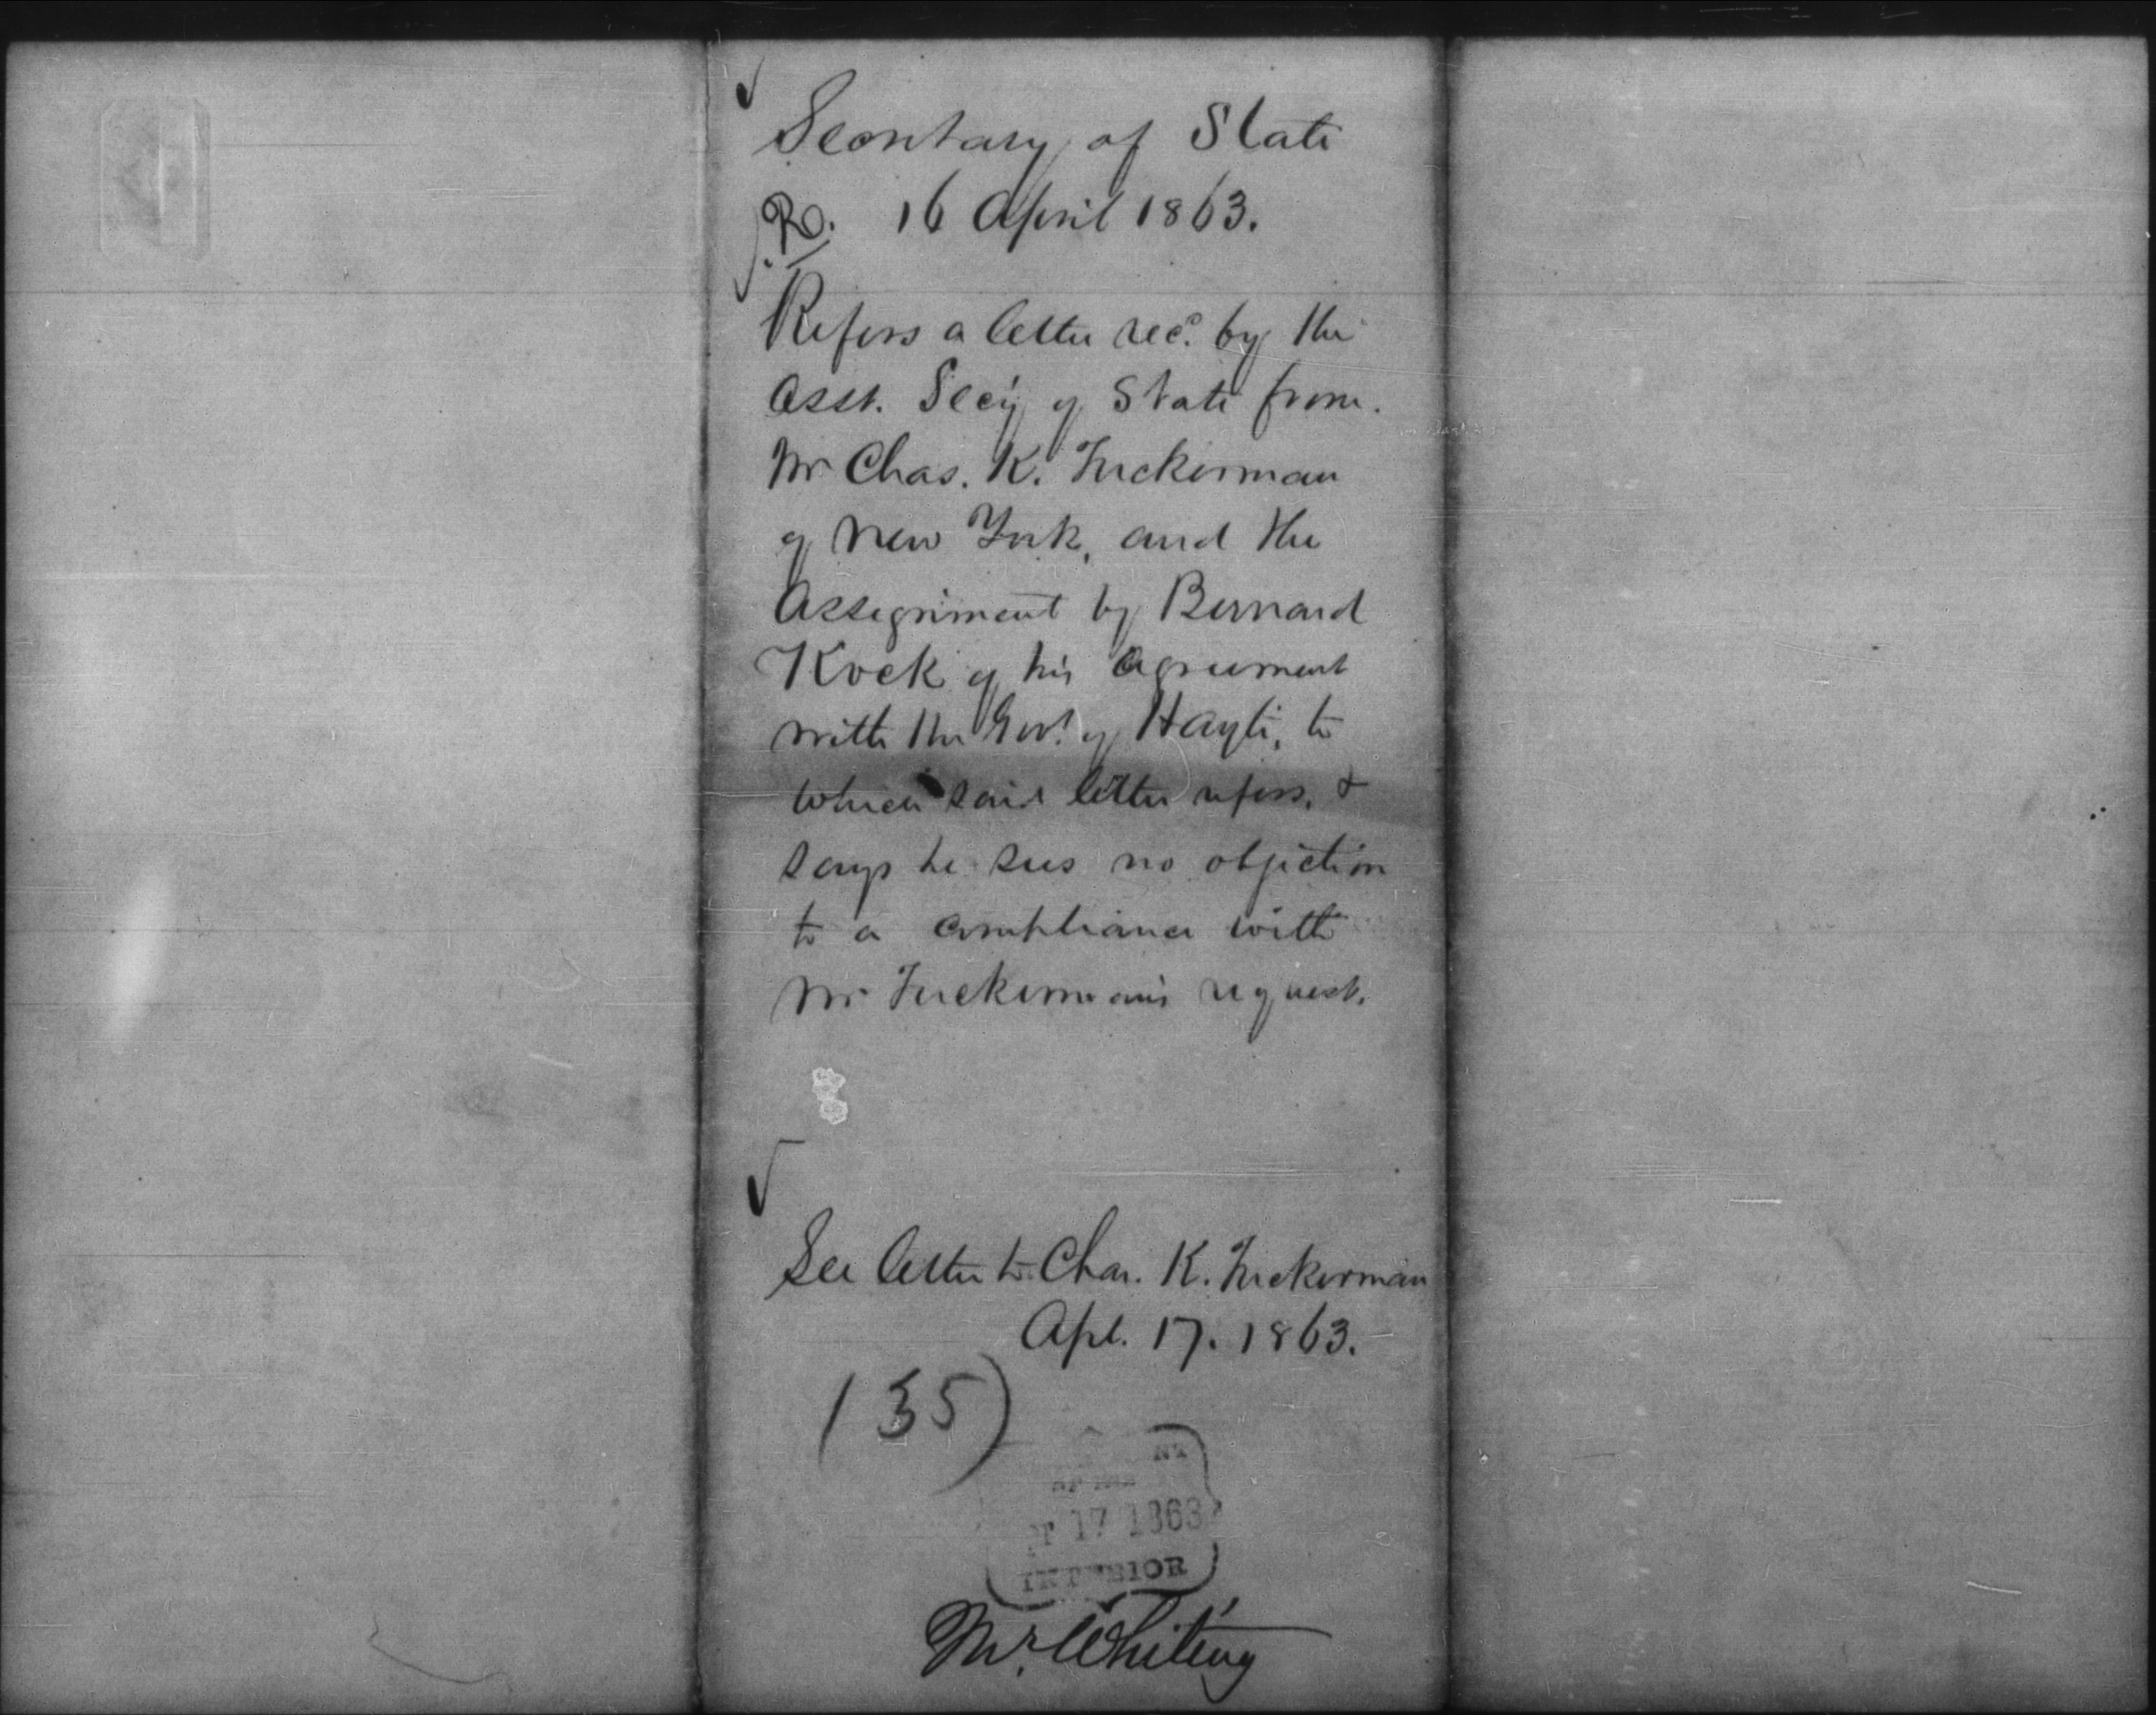 Secretary of State
R. 16 April 1863.
Refers a letter recd. by the
Asst. Secy of State from
Mr Chas. K. Tuckerman
of New York, and the
Assignment by Bernard
Kock of his Agreement
with the Govt. of Hayti, to
which said letter refers, &
says he sees no objection
to a compliance with
Mr Tuckerman's request.
See letter to Chas. K. Tuckerman
Apl. 17. 1863.
(35)
17 1863
INTERIOR
Mr. Whiting